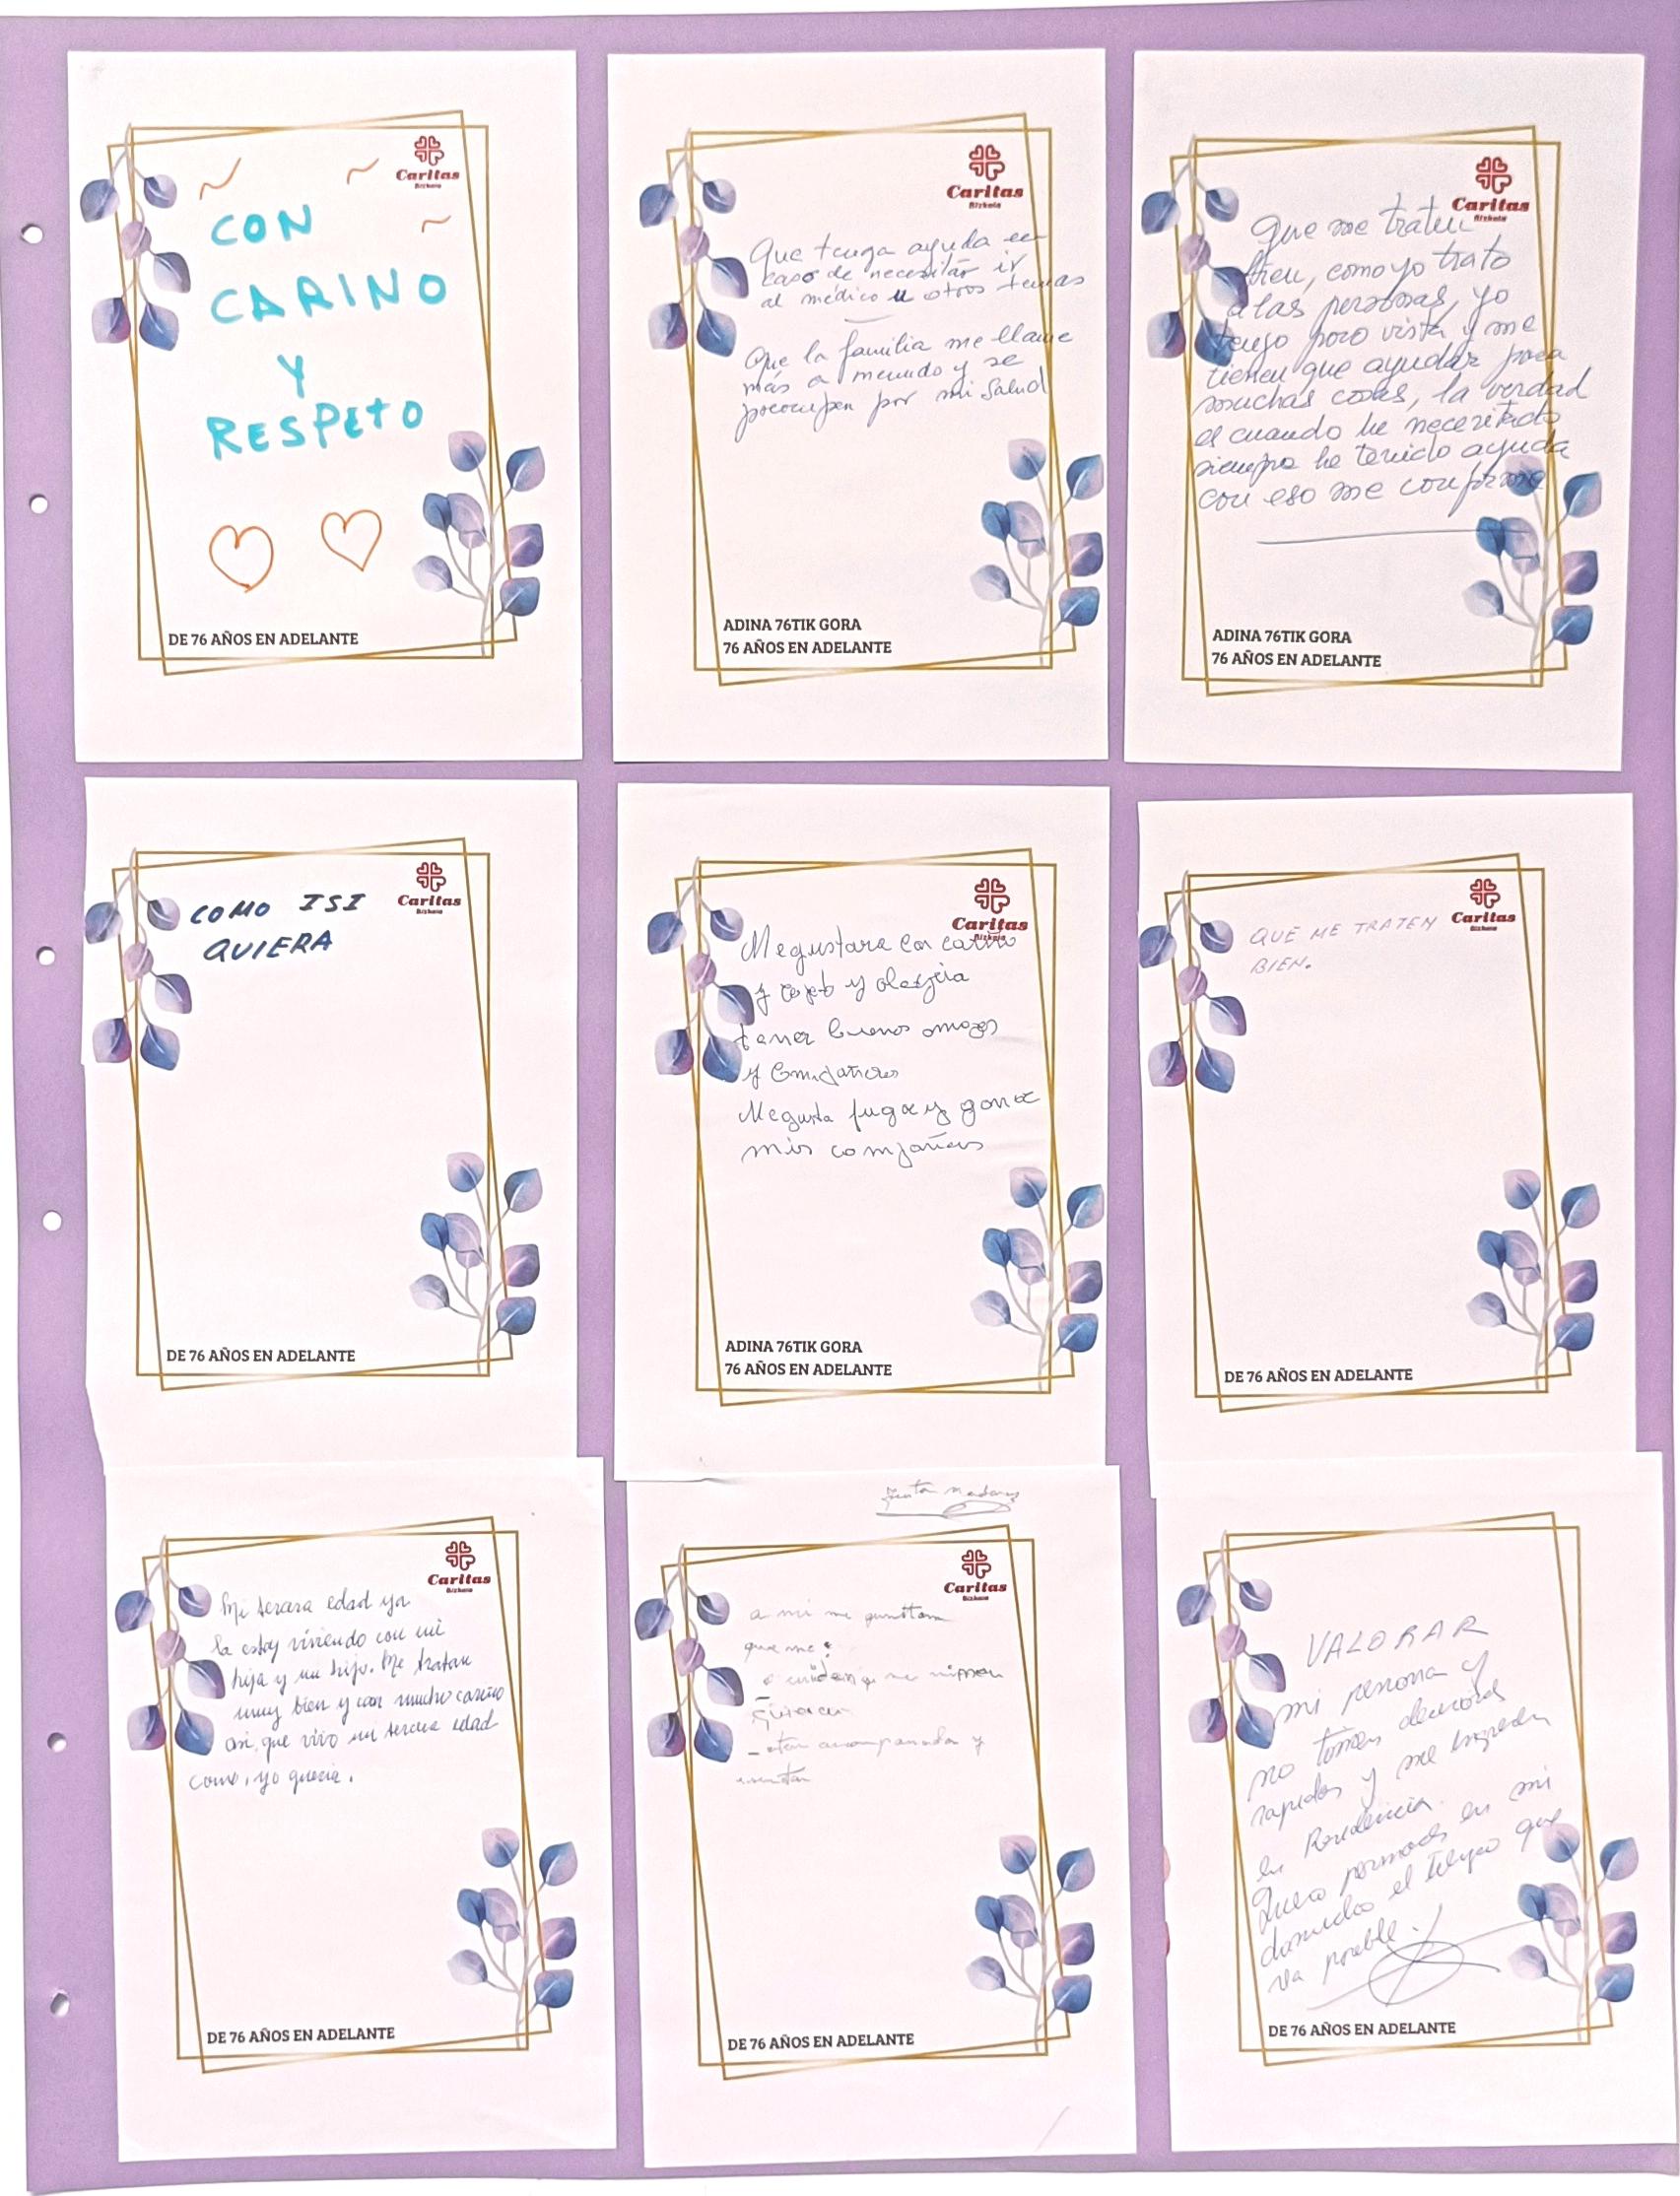 Caritas
Bizkaia
CON
CARINO
Y
RESPETO
DE 76 AÑOS EN ADELANTE
Caritas
Bizkaia
Que tenga ayuda en
caso de necesitar ir
al médico u otros temas
Que la familia me llame
más a menudo y se
preocupen por mi salud
ADINA 76TIK GORA
76 AÑOS EN ADELANTE
Caritas
Bizkaia
Que me traten
bien, como yo trato
a las personas, yo
tengo poco vista y me
tienen que ayudar para
muchas cosas, la verdad
es cuando he necesitado
siempre he tenido ayuda
con eso me conformo
ADINA 76TIK GORA
76 AÑOS EN ADELANTE
Caritas
Bizkaia
COMO ISI
QUIERA
DE 76 AÑOS EN ADELANTE
Caritas
Bizkaia
Me gustara con cariño
y y alegria
tener buenos
y
Me gusta y
mis compañeros
ADINA 76TIK GORA
76 AÑOS EN ADELANTE
Caritas
Bizkaia
QUE ME TRATEN
BIEN.
DE 76 AÑOS EN ADELANTE
Caritas
Bizkaia
Mi tercera edad ya
la estoy viviendo con mi
hija y un hijo. Me tratan
muy bien y con mucho cariño
asi, que vivo mi tercera edad
como, yo queria.
DE 76 AÑOS EN ADELANTE
Caritas
Bizkaia
a mi me gustaria
que me:
y
DE 76 AÑOS EN ADELANTE
VALORAR
mi persona y
no tomen
rapidas y me ingresen
en Residencia.
Quiero en mi
domicilio el tiempo que
sea posible.
DE 76 AÑOS EN ADELANTE